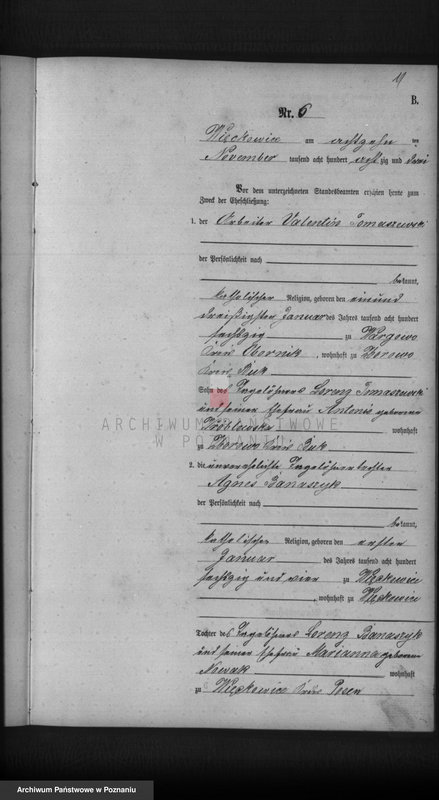 11
B.
Nr. 6
Więckowice am achtzehn ten
November tausend acht hundert acht zig und drei
Vor dem unterzeichneten Standesbeamten erschien heute zum
Zweck der Eheschließung:
1. der Arbeiter Valentin Tomaszewski
der Persönlichkeit nach
bekannt,
katholischer Religion, geboren den einund
dreißigsten Januar des Jahres tausend acht hundert
sechszig zu Wargowo
Kreis Obornik, wohnhaft zu
Kreis Buk
Sohn des Tagelöhners Lorenz Tomaszewski
und seiner Ehefrau Antonie geborene
wohnhaft
zu Kreis Buk
2. die unverehelichte Tagelöhnertochter
Agnes Banaszyk
der Persönlichkeit nach
bekannt,
katholischer Religion, geboren den ersten
Januar des Jahres tausend acht hundert
sechszig und vier zu Więckowice
, wohnhaft zu Więckowice
Tochter des Tagelöhners Lorenz Banaszyk
und seiner Ehefrau Marianna geborene
Nowak wohnhaft
zu Więckowice Kreis Posen
ARCHIWUM PAŃSTWOWE
W POZNANIU
Archiwum Państwowe w Poznaniu